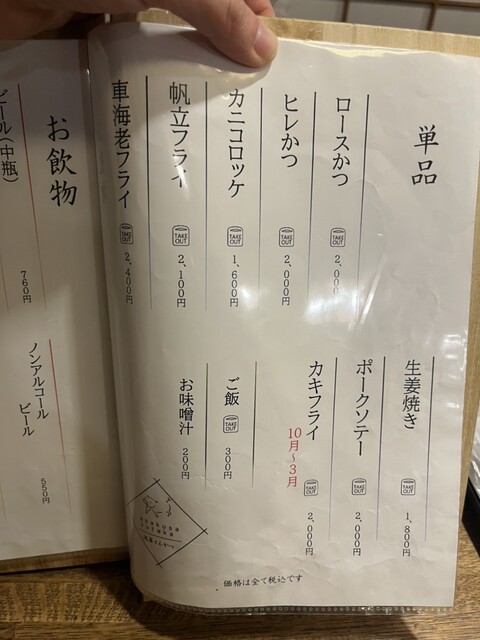 単品
ロースかつ TAKE OUT 2,000円
ヒレかつ TAKE OUT 2,000円
カニコロッケ TAKE OUT 1,600円
帆立フライ TAKE OUT 2,100円
車海老フライ TAKE OUT 2,400円
生姜焼き TAKE OUT 1,800円
ポークソテー TAKE OUT 2,000円
カキフライ 10月〜3月 TAKE OUT 2,000円
ご飯 TAKE OUT 300円
お味噌汁 200円
価格は全て税込です
お飲物
ビール(中瓶) 760円
ノンアルコール
ビール 550円